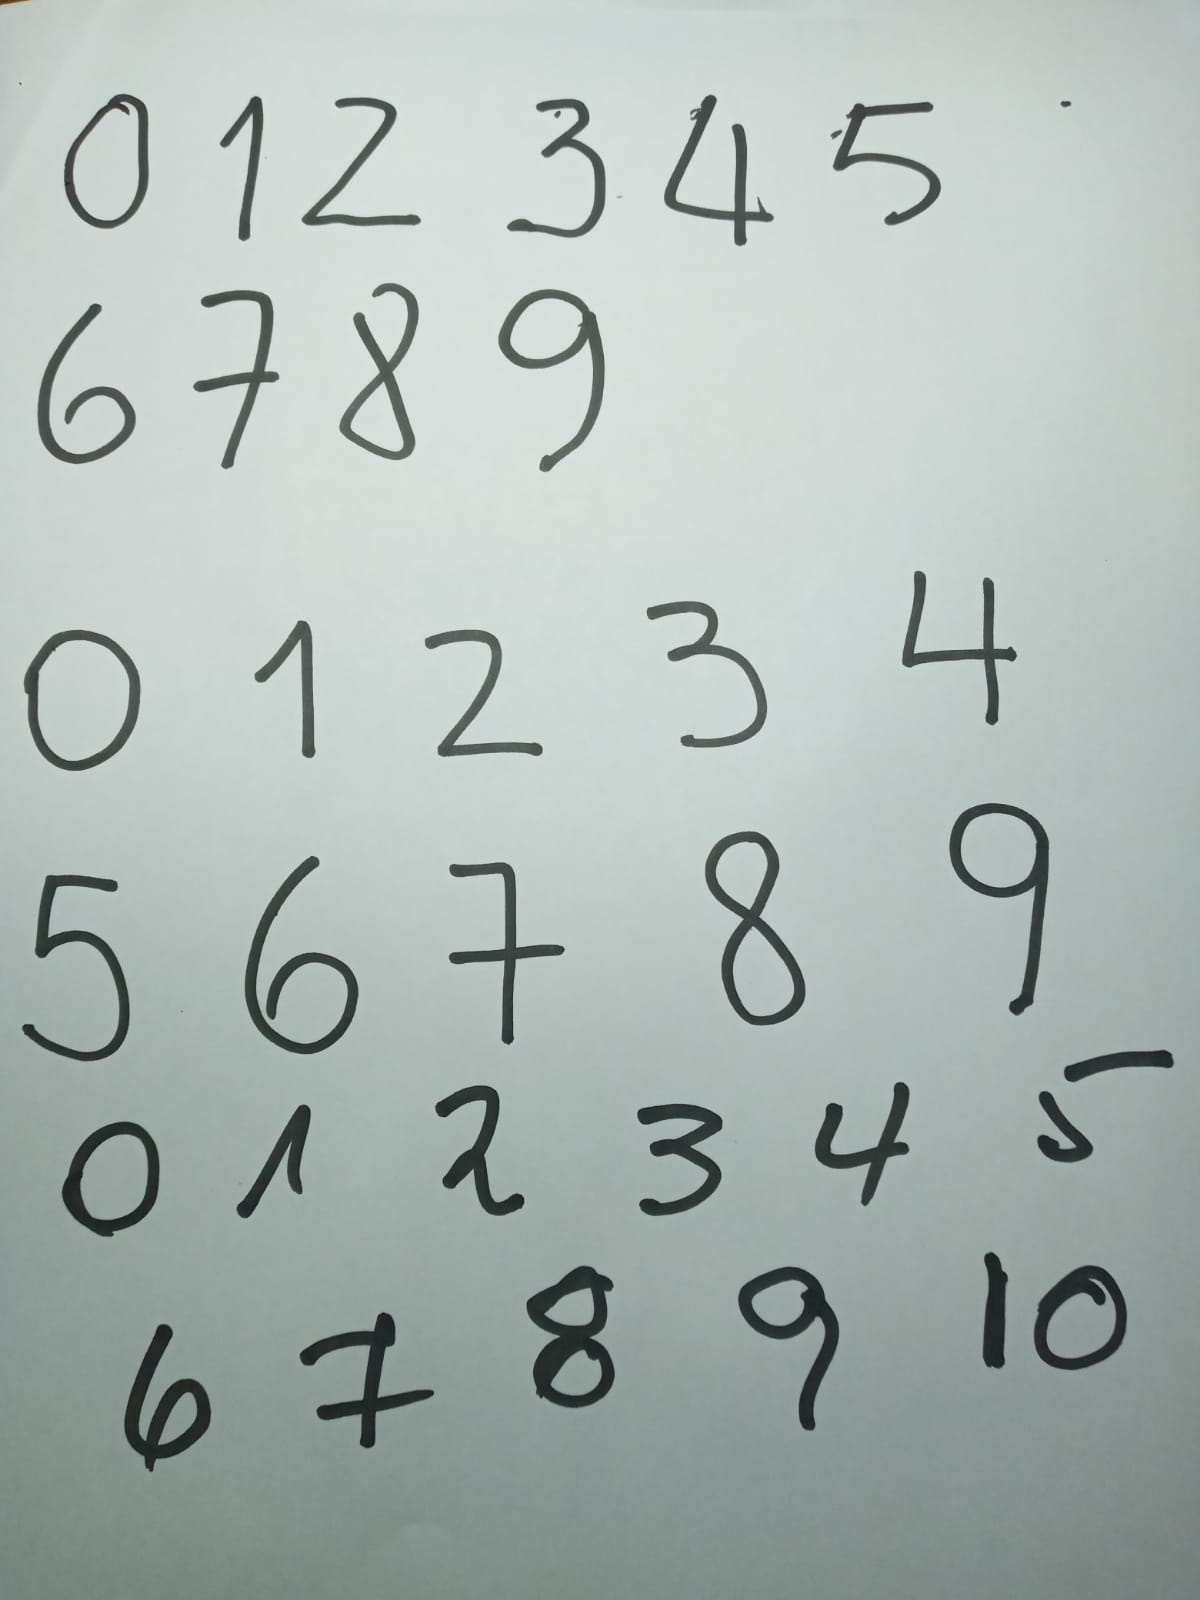 0 1 2 3 4 5
6 7 8 9
0 1 2 3 4
5 6 7 8 9
0 1 2 3 4 5
6 7 8 9 10